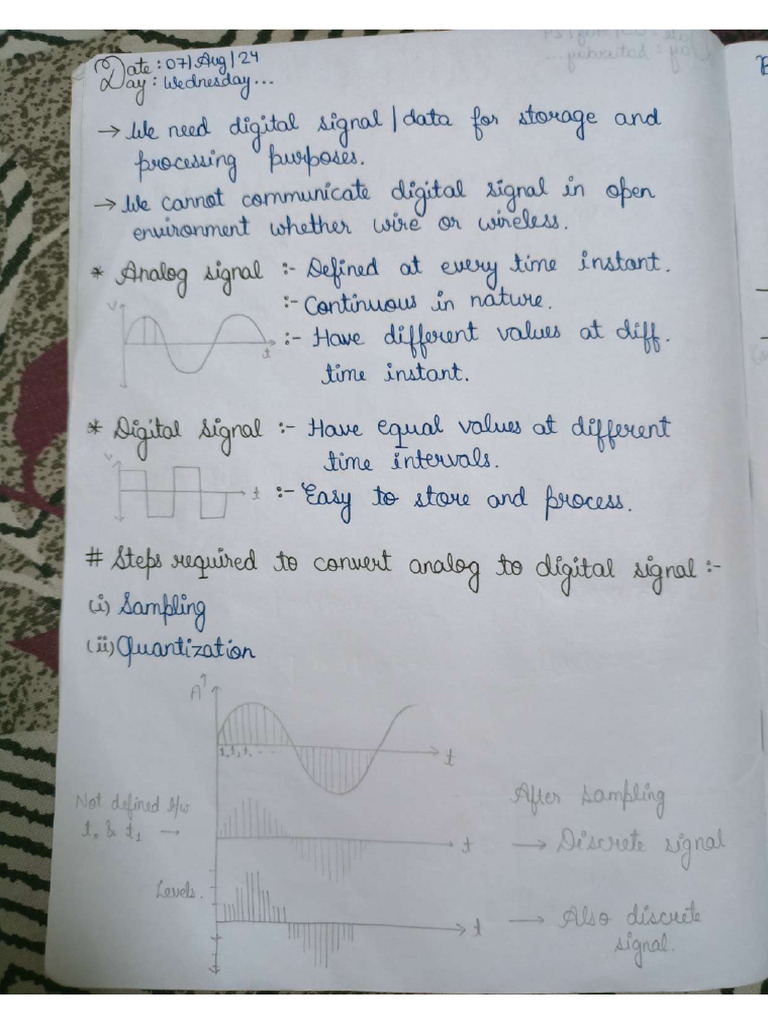 Date : 07/Aug/24
Day : Wednesday...
→ We need digital signal/data for storage and
processing purposes.
→ We cannot communicate digital signal in open
environment whether wire or wireless.
* Analog signal :- Defined at every time instant.
:- Continuous in nature.
V
t
:- Have different values at diff.
time instant.
* Digital Signal :- Have equal values at different
time intervals.
V
t
:- Easy to store and process.
# Steps required to convert analog to digital signal :-
(i) Sampling
(ii) Quantization
A
t
Not defined b/w
t₀ & t₁ →
t
After sampling
→ Discrete signal
Levels.
t
→ Also discrete
signal.